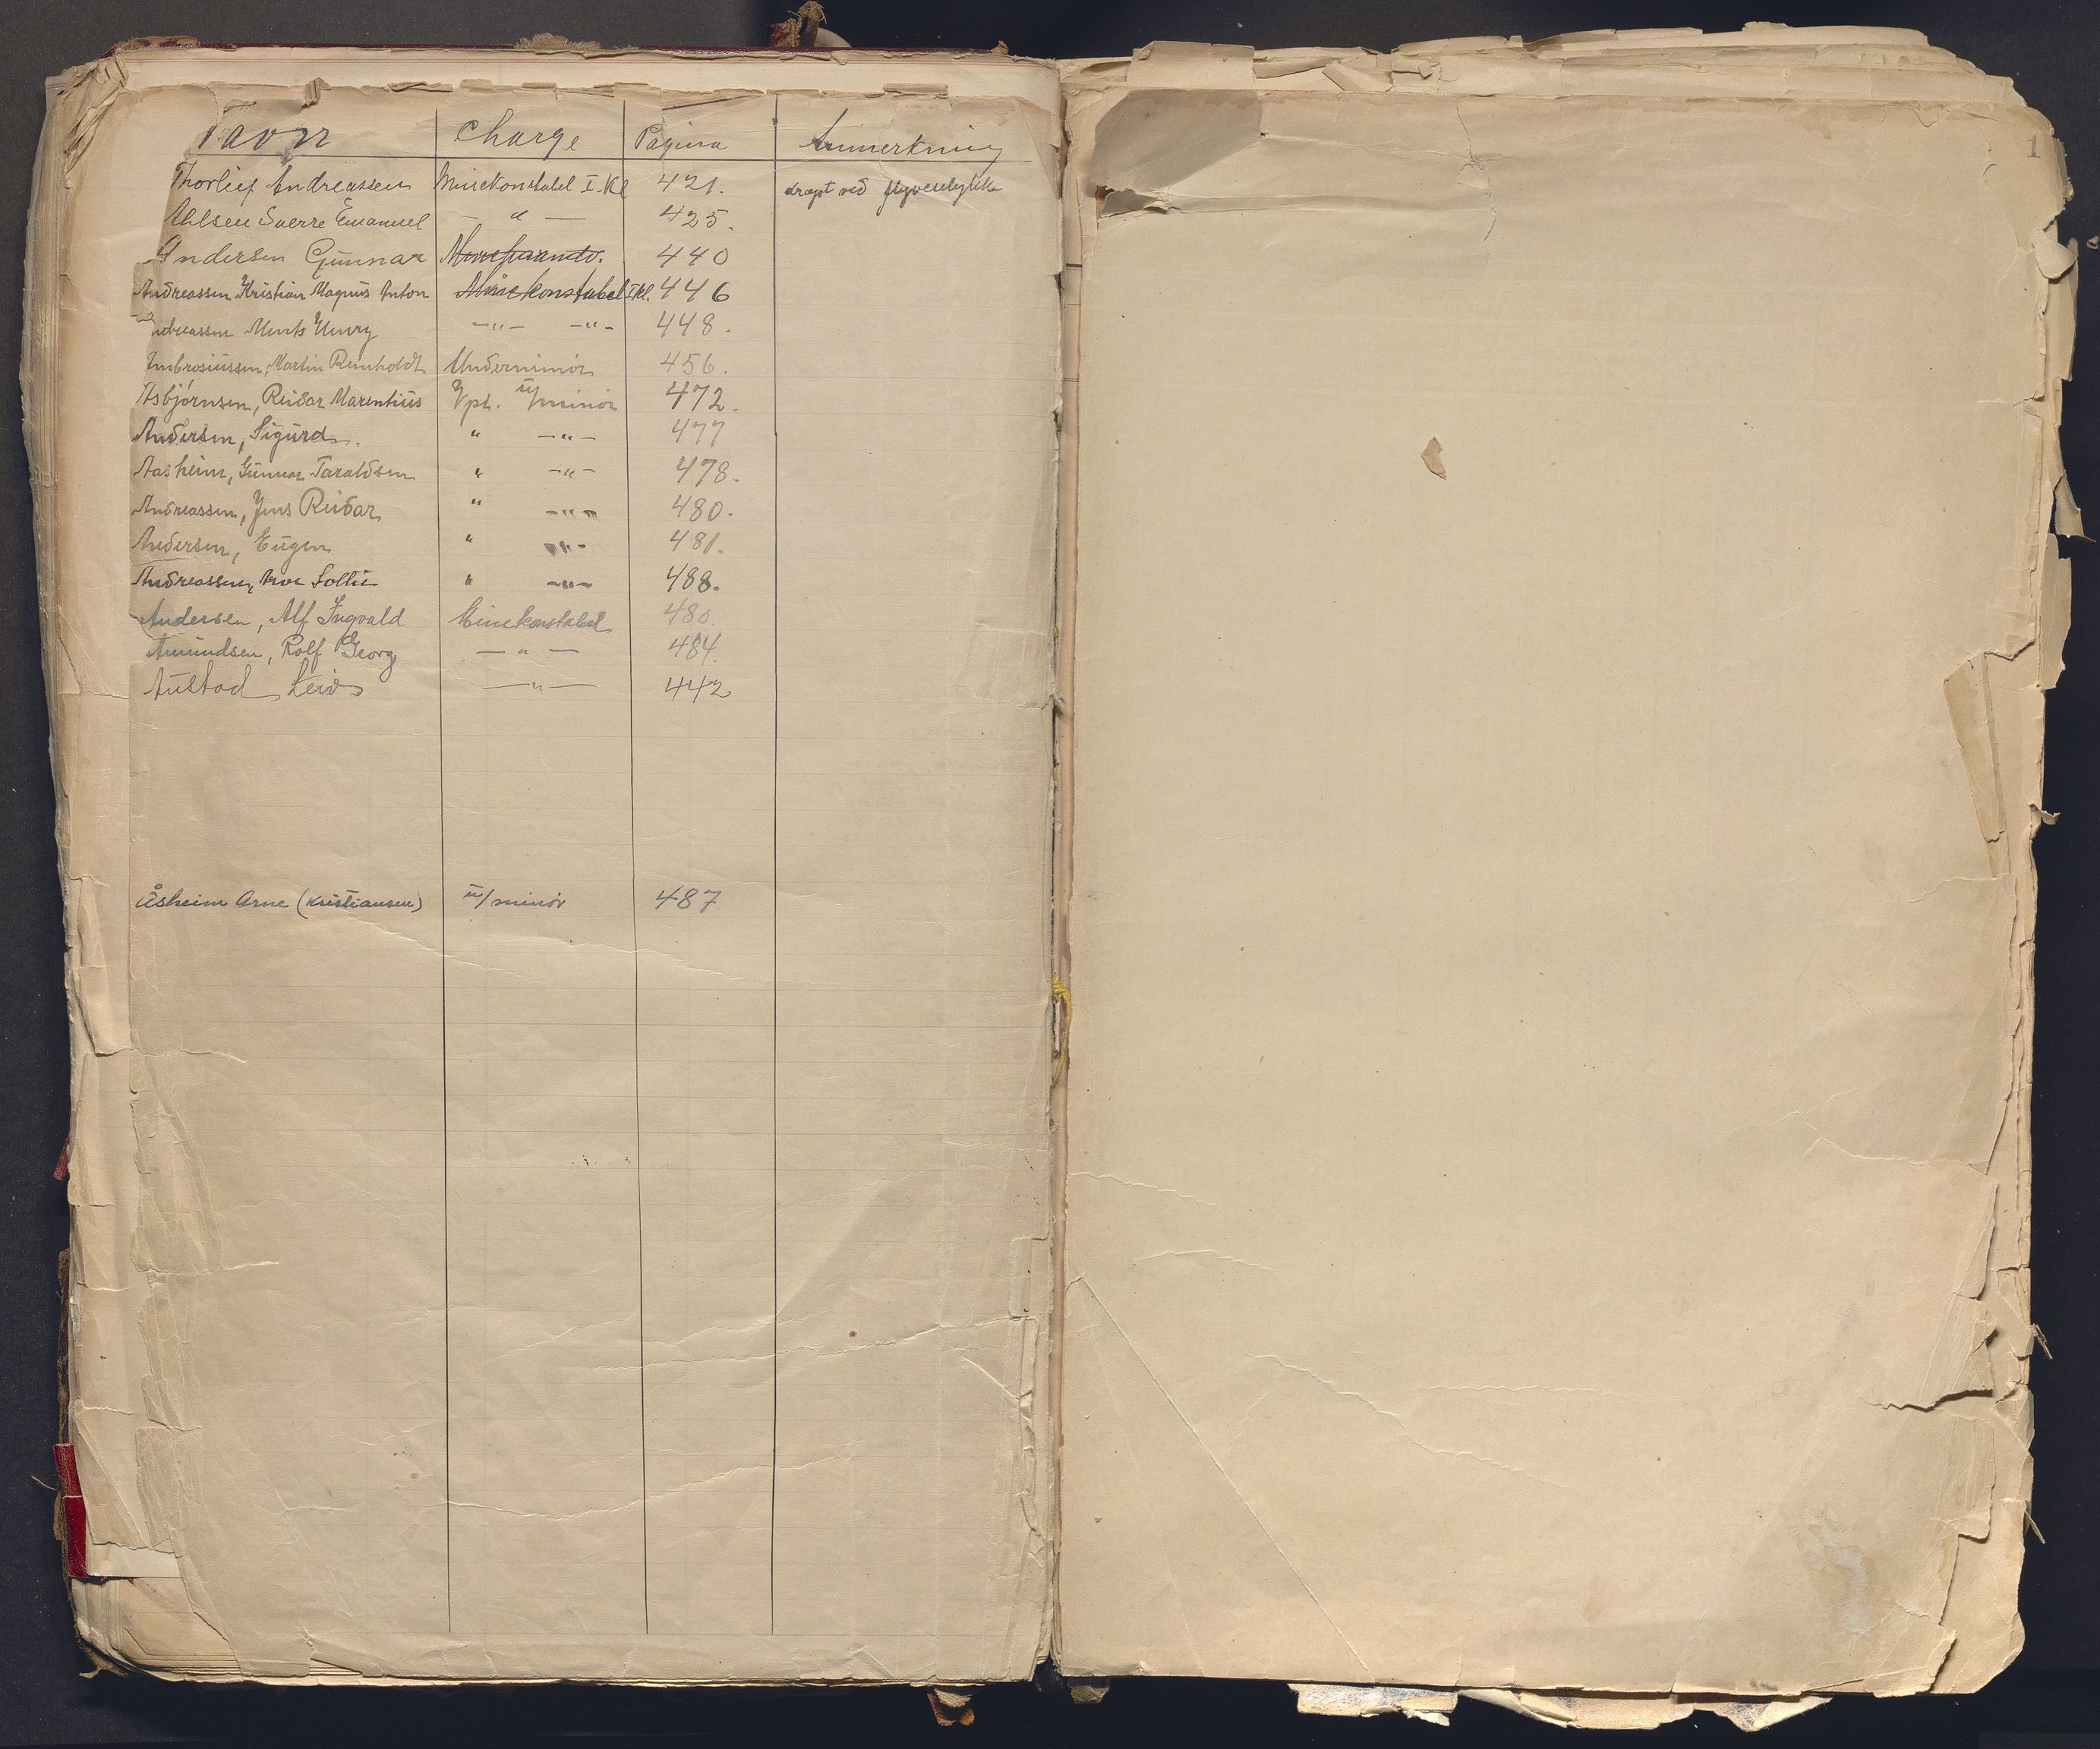 Navn Charge Pagina Anmerkning
Thorleif Andreassen Minekonstabel I. Kl 421. dræpt ved flyveulykke
Ahlsen Sverre Emanuel — " — 425.
Andersen Gunnar 440
Andreassen Kristian Magnus Anton Minekonstabel I Kl. 446
Andreassen Henry -"- -"- 448.
Ambrosiussen, Martin Reinholdt Underminör 456.
Asbjørnsen, Reidar Marentius Vpl. u/minör 472.
Andersen, Sigurd. " -"- 477
Aasheim, Gunnar Taraldsen " -"- 478.
Andreassen, Jens Reidar " -"- 480.
Andersen, Eugen " -"- 481.
Andreassen, " -"- 488.
Andersen, Alf Ingvald Minekonstabel 480.
Amundsen, Rolf Georg — " — 484.
Austad — " — 442
Åsheim Arne (Kristiansen) u/minör 487
1